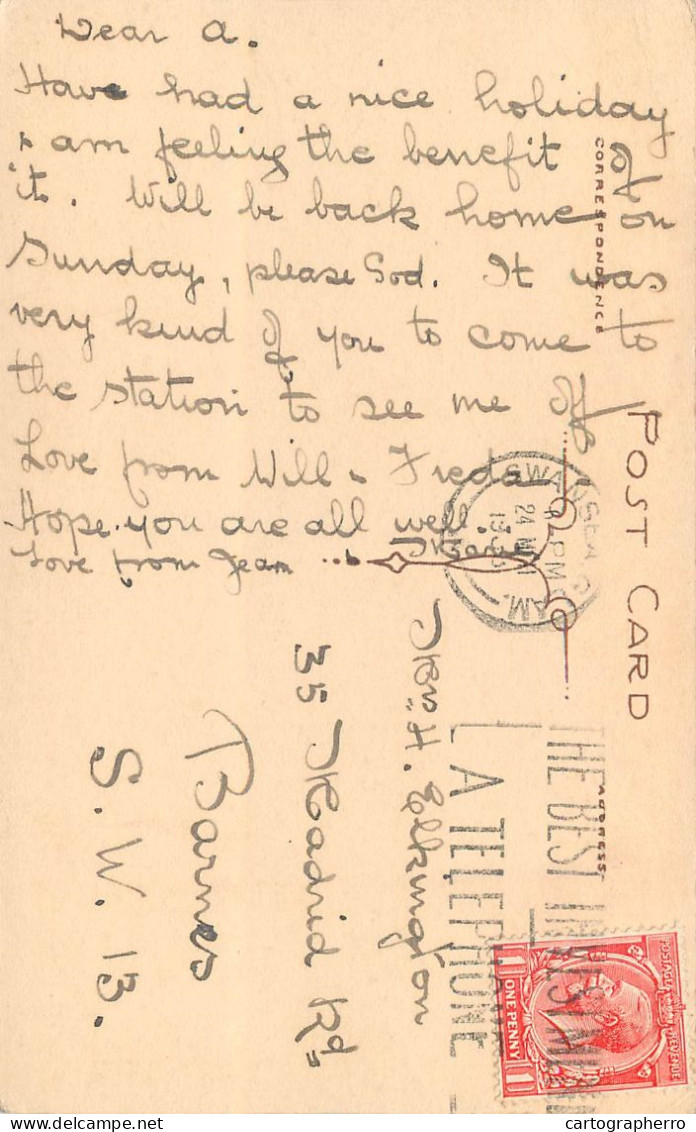 Dear A.
Have had a nice holiday
& am feeling the benefit of
it. Will be back home on
Sunday, please God. It was
very kind of you to come to
the station to see me off.
Love from Will & Freda
Hope you are all well.
Love from Jean
CORRESPONDENCE
POST CARD
ADDRESS
H. Elkington
35 Madrid Rd
Barnes
S. W. 13.
SWANSEA
PM
24
THE BEST INVESTMENT
A TELEPHONE
POSTAGE REVENUE
1 ONE PENNY 1
cartographerro